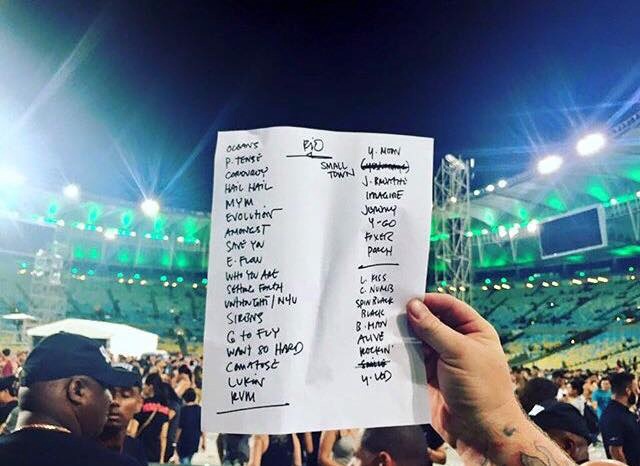 RIO
OCEANS
P. TENSE
CORDUROY
HAIL HAIL
MYM
EVOLUTION
AMONGST
SAVE YOU
E. FLOW
WHO YOU ARE
SETTING FORTH
UNTHOUGHT / N4U
SIRENS
G TO FLY
WANT SO HARD
COMATOSE
LUKIN
RVM
SMALL
TOWN
Y. MOON
J. BREATHE
IMAGINE
JEREMY
Y-GO
FIXER
PORCH
L. KISS
C. NUMB
SPIN BLACK
BLACK
B. MAN
ALIVE
ROCKIN'
SMILE
Y. LED